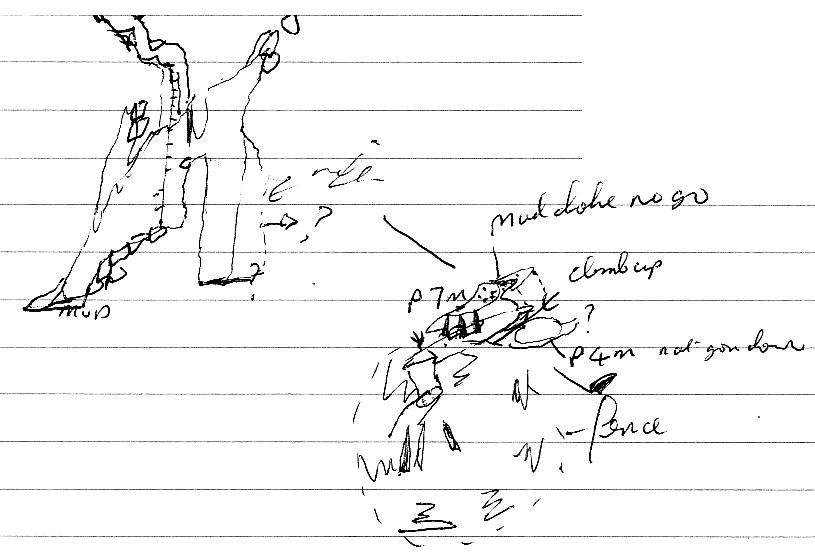 MUD
?
Mud choke no go
climb up
P7m
?
P4m not gon down
fence